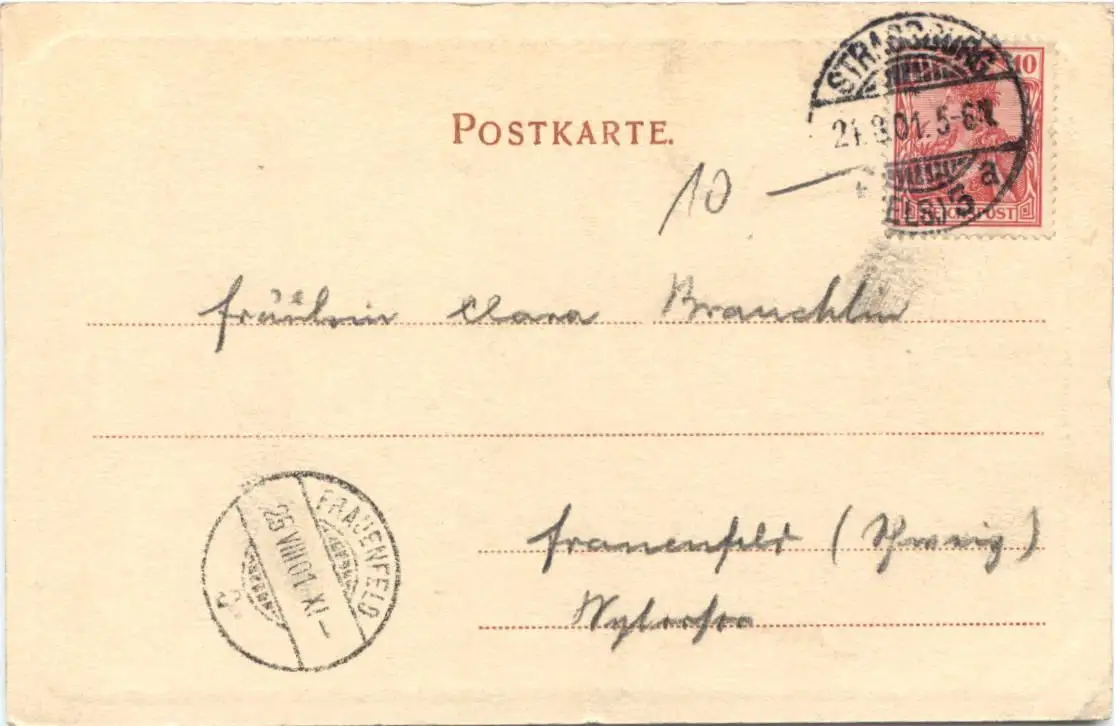 STRASSBURG
10
21.8.01. 5-6N.
a
(ELS.) 5
REICHSPOST
POSTKARTE.
10 —
Fräulein Clara Brauchlin
FRAUENFELD
25 VIII 01 XI –
Frauenfeld (Schweiz)